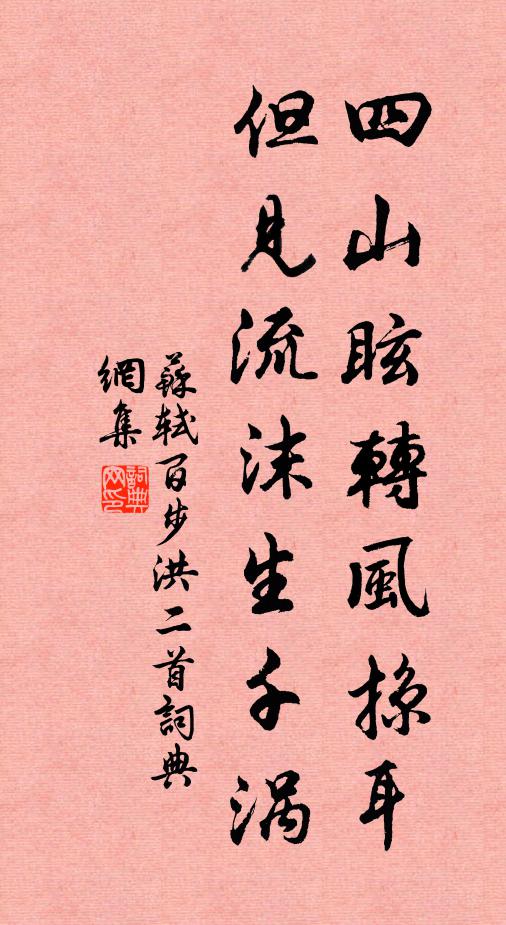 四山眩轉風掠耳
但見流沫生千渦
蘇軾百步洪二首詞典
網集
詞典网印